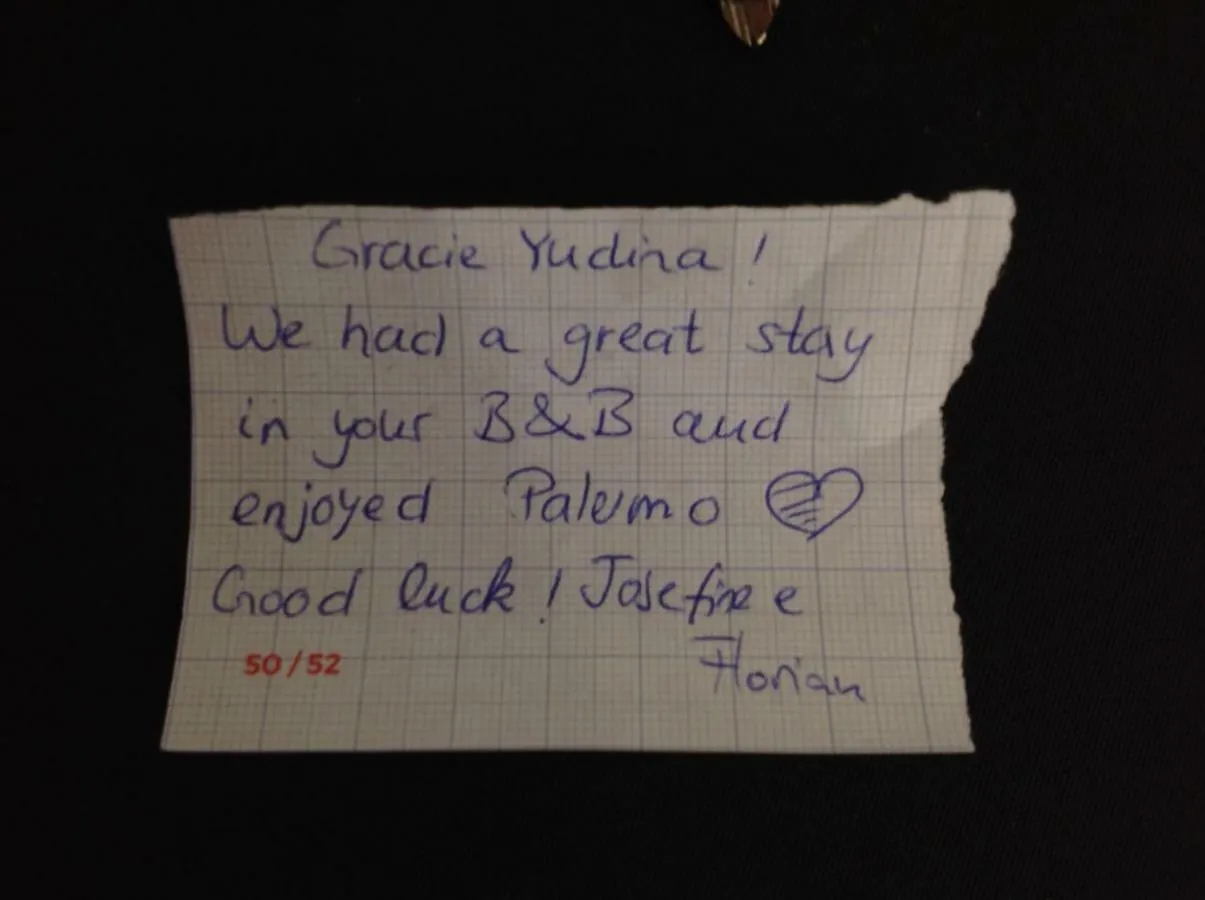 Gracie Yudina!
We had a great stay
in your B&B and
enjoyed Palermo ♡
Good luck! Josefine e
Florian
50/52